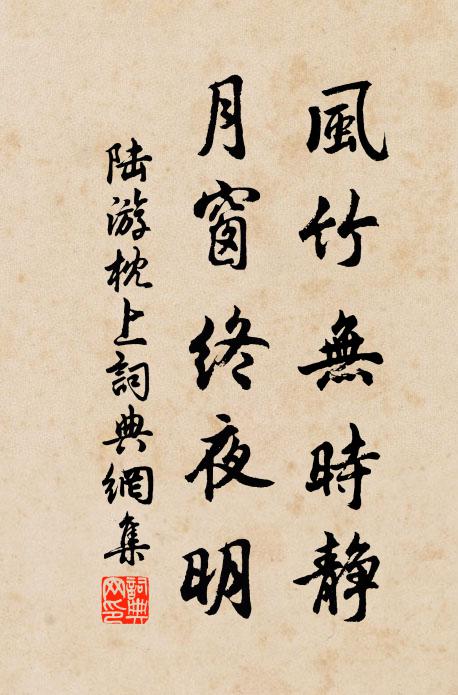 風竹無時静
月窗終夜明
陆游枕上詞典網集
詞典網印